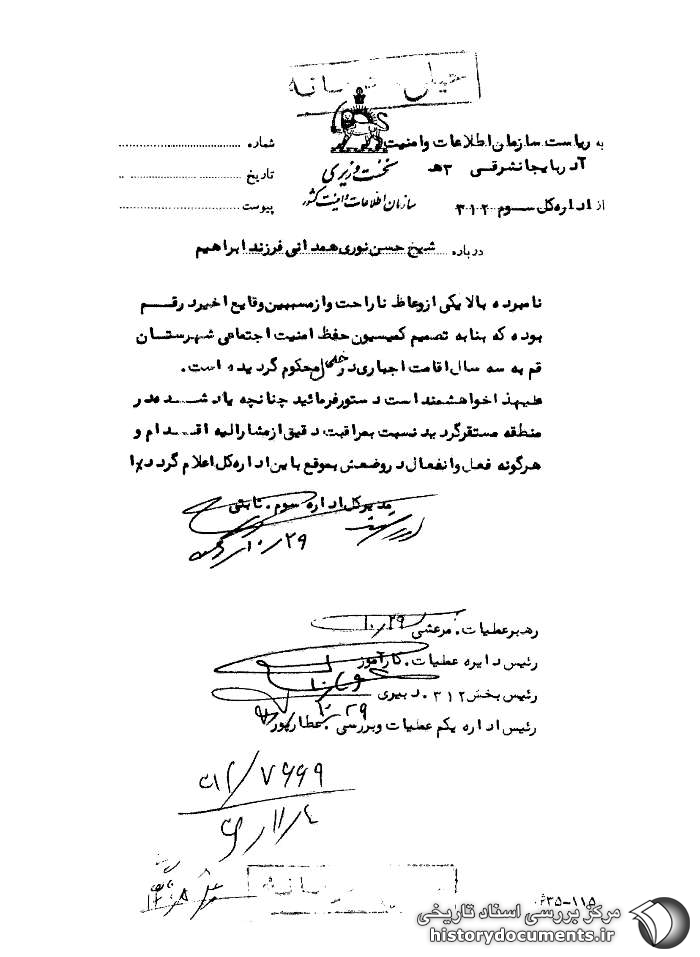 خیلی محرمانه
به ریاست سازمان اطلاعات و امنیت
آذربایجانشرقی ۳هـ
از اداره کل سوم ۳۱۲
نخست وزیری
سازمان اطلاعات و امنیت کشور
شماره
تاریخ
پیوست
درباره شیخ حسن نوری همدانی فرزند ابراهیم
نامبرده بالا یکی از وعاظ ناراحت و از مسببین وقایع اخیر در قم
بوده که بنا به تصمیم کمیسیون حفظ امنیت اجتماعی شهرستان
قم به سه سال اقامت اجباری در خلخال محکوم گردیده است.
علیهذا خواهشمند است دستور فرمائید چنانچه یاد شده در
منطقه مستقر گردید نسبت بمراقبت دقیق از مشارالیه اقدام و
هرگونه فعل و انفعال در وضعش بموقع باین اداره کل اعلام گردد
مدیر کل اداره سوم. ثابتی
۲۹/۱۰/
رهبر عملیات. مرعشی ۱۰/۲۹
رئیس دایره عملیات. کارآموز
رئیس بخش ۳۱۲. دبیری
رئیس اداره یکم عملیات و بررسی. عطارپور
۷۶۶۹/
۱۱/۴
محرمانه
۶۳۵-۱۱۵
مرکز بررسی اسناد تاریخی
historydocuments.ir